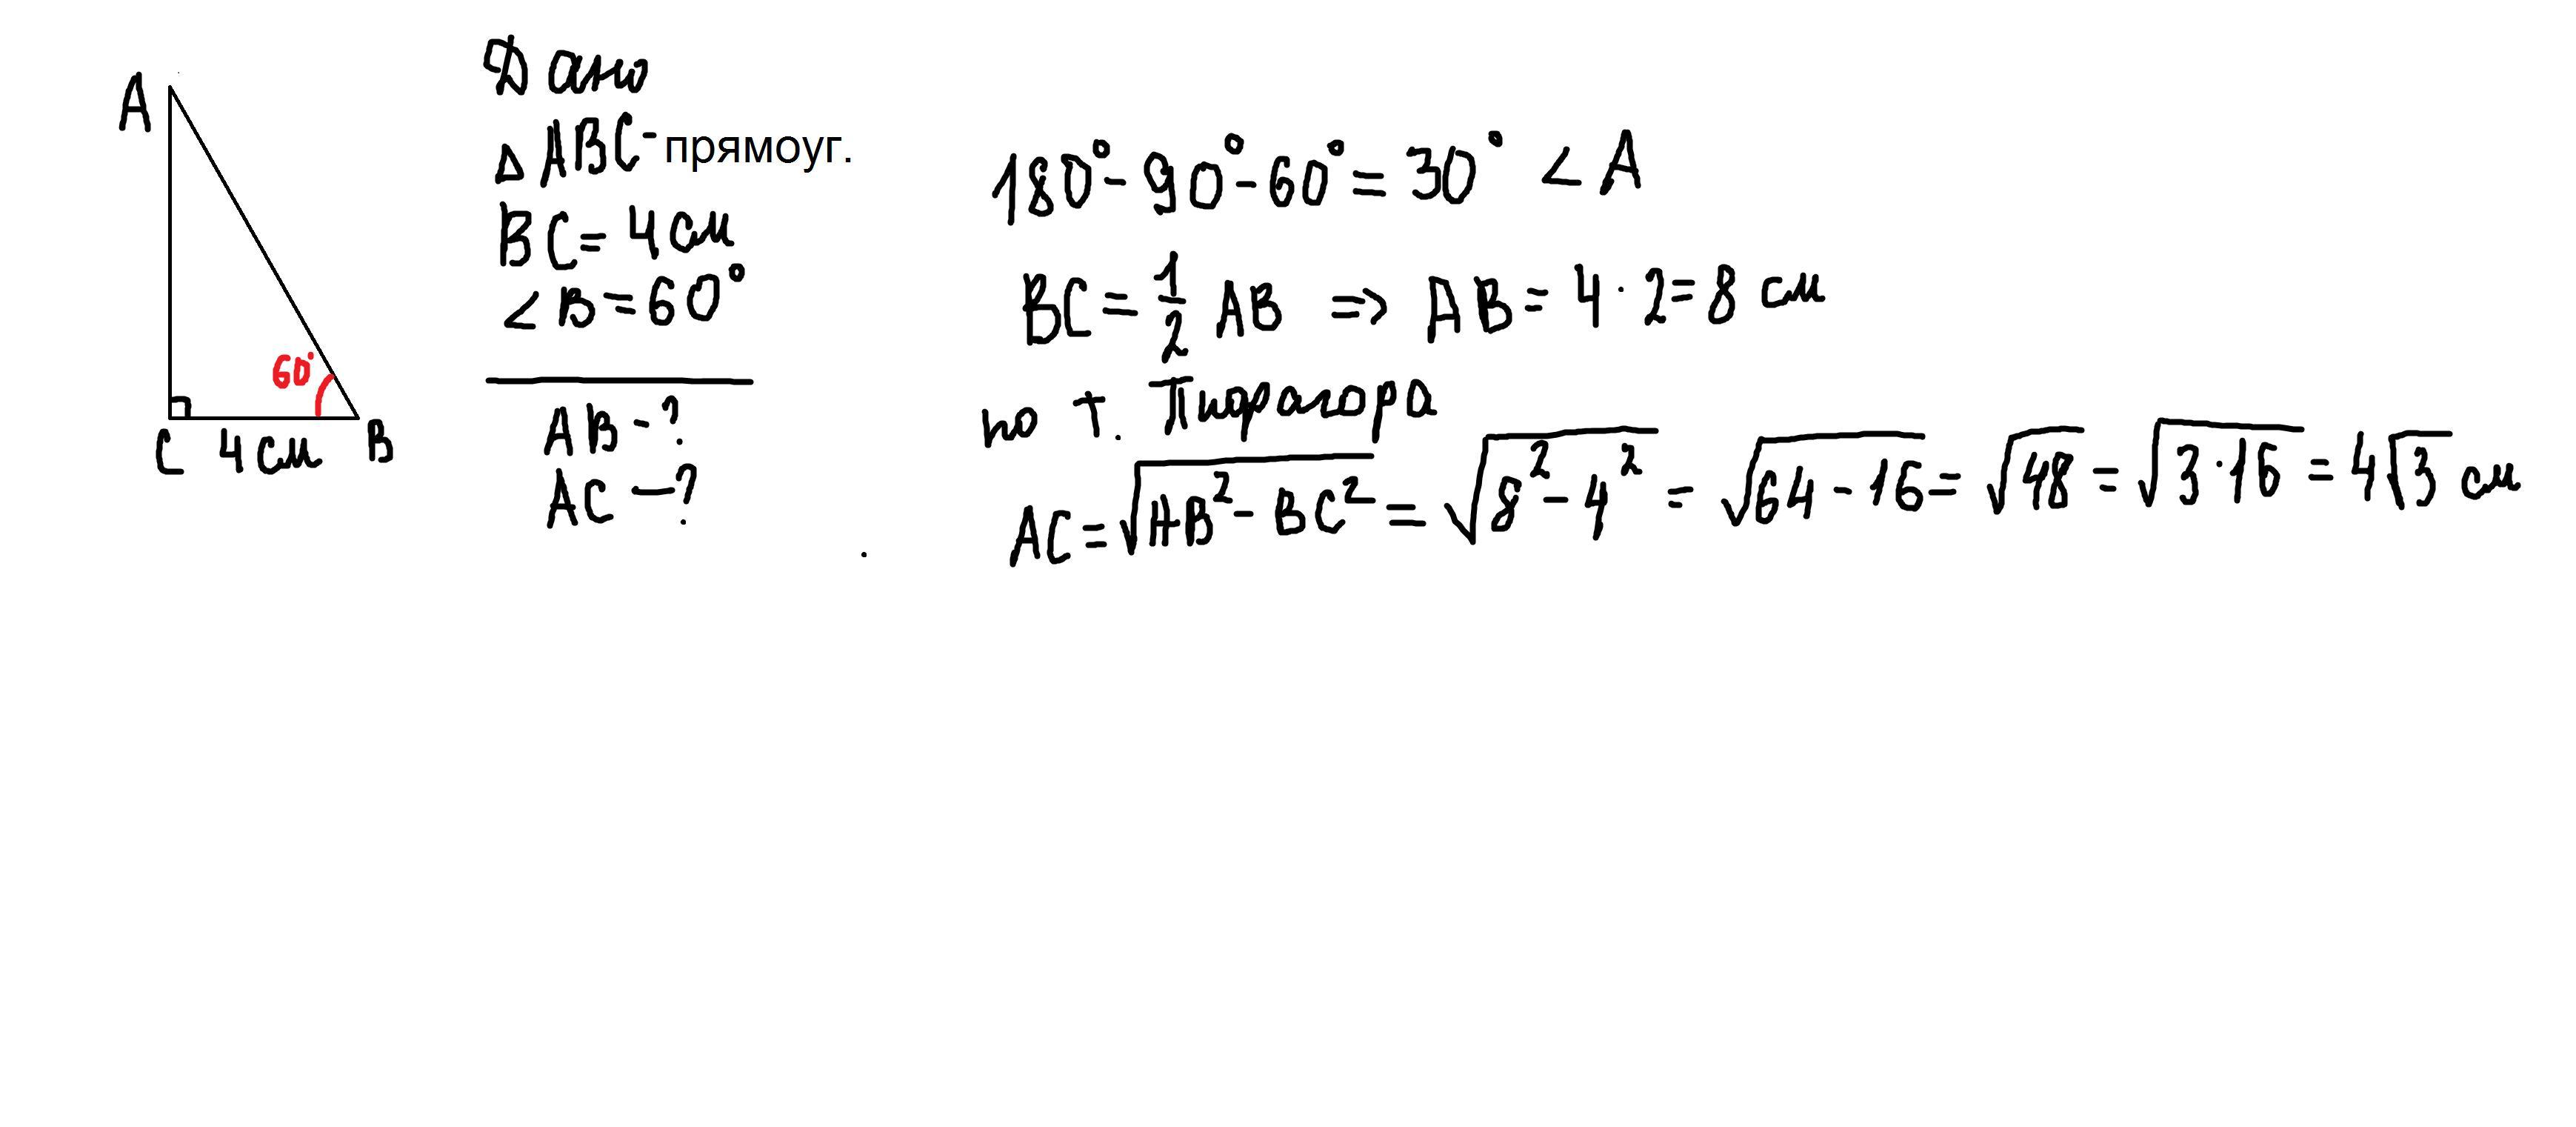 A
60°
C 4 см B
Дано
△ ABC- прямоуг.
BC = 4 см
∠ B = 60°
AB - ?
AC - ?
180° - 90° - 60° = 30° ∠ A
BC = 1/2 AB ⇒ AB = 4 · 2 = 8 см
по т. Пифагора
AC = √(AB² - BC²) = √(8² - 4²) = √(64 - 16) = √48 = √(3 · 16) = 4√3 см